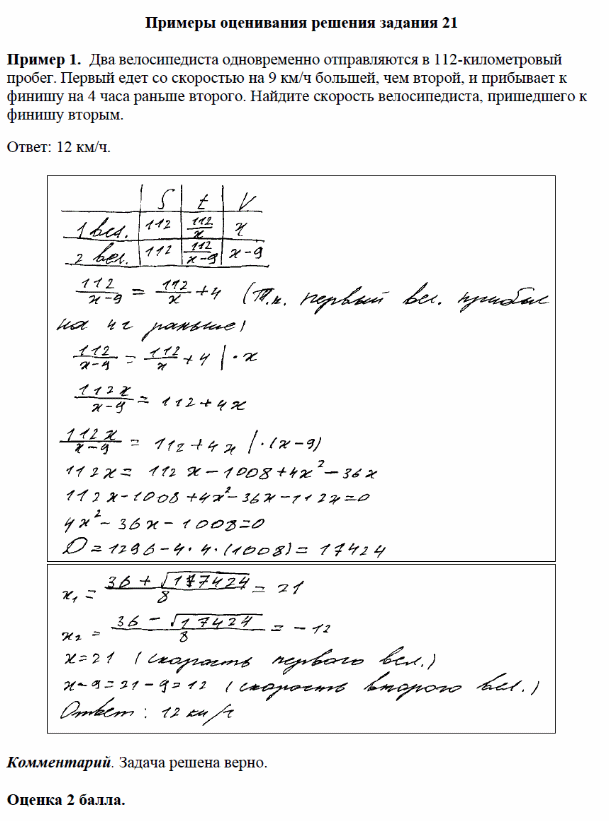 Примеры оценивания решения задания 21
Пример 1. Два велосипедиста одновременно отправляются в 112-километровый
пробег. Первый едет со скоростью на 9 км/ч большей, чем второй, и прибывает к
финишу на 4 часа раньше второго. Найдите скорость велосипедиста, пришедшего к
финишу вторым.
Ответ: 12 км/ч.
S t V
1 вел. 112 112/x x
2 вел. 112 112/(x-9) x-9
112/(x-9) = 112/x + 4 (Т.к. первый вел. прибыл
на 4 ч раньше)
112/(x-9) = 112/x + 4 | · x
112x/(x-9) = 112 + 4x
112x/(x-9) = 112 + 4x | · (x-9)
112x = 112x - 1008 + 4x² - 36x
112x - 1008 + 4x² - 36x - 112x = 0
4x² - 36x - 1008 = 0
D = 1296 - 4 · 4 · (1008) = 17424
x₁ = (36 + √17424)/8 = 21
x₂ = (36 - √17424)/8 = -12
x = 21 (скорость первого вел.)
x - 9 = 21 - 9 = 12 (скорость второго вел.)
Ответ: 12 км/ч
Комментарий. Задача решена верно.
Оценка 2 балла.